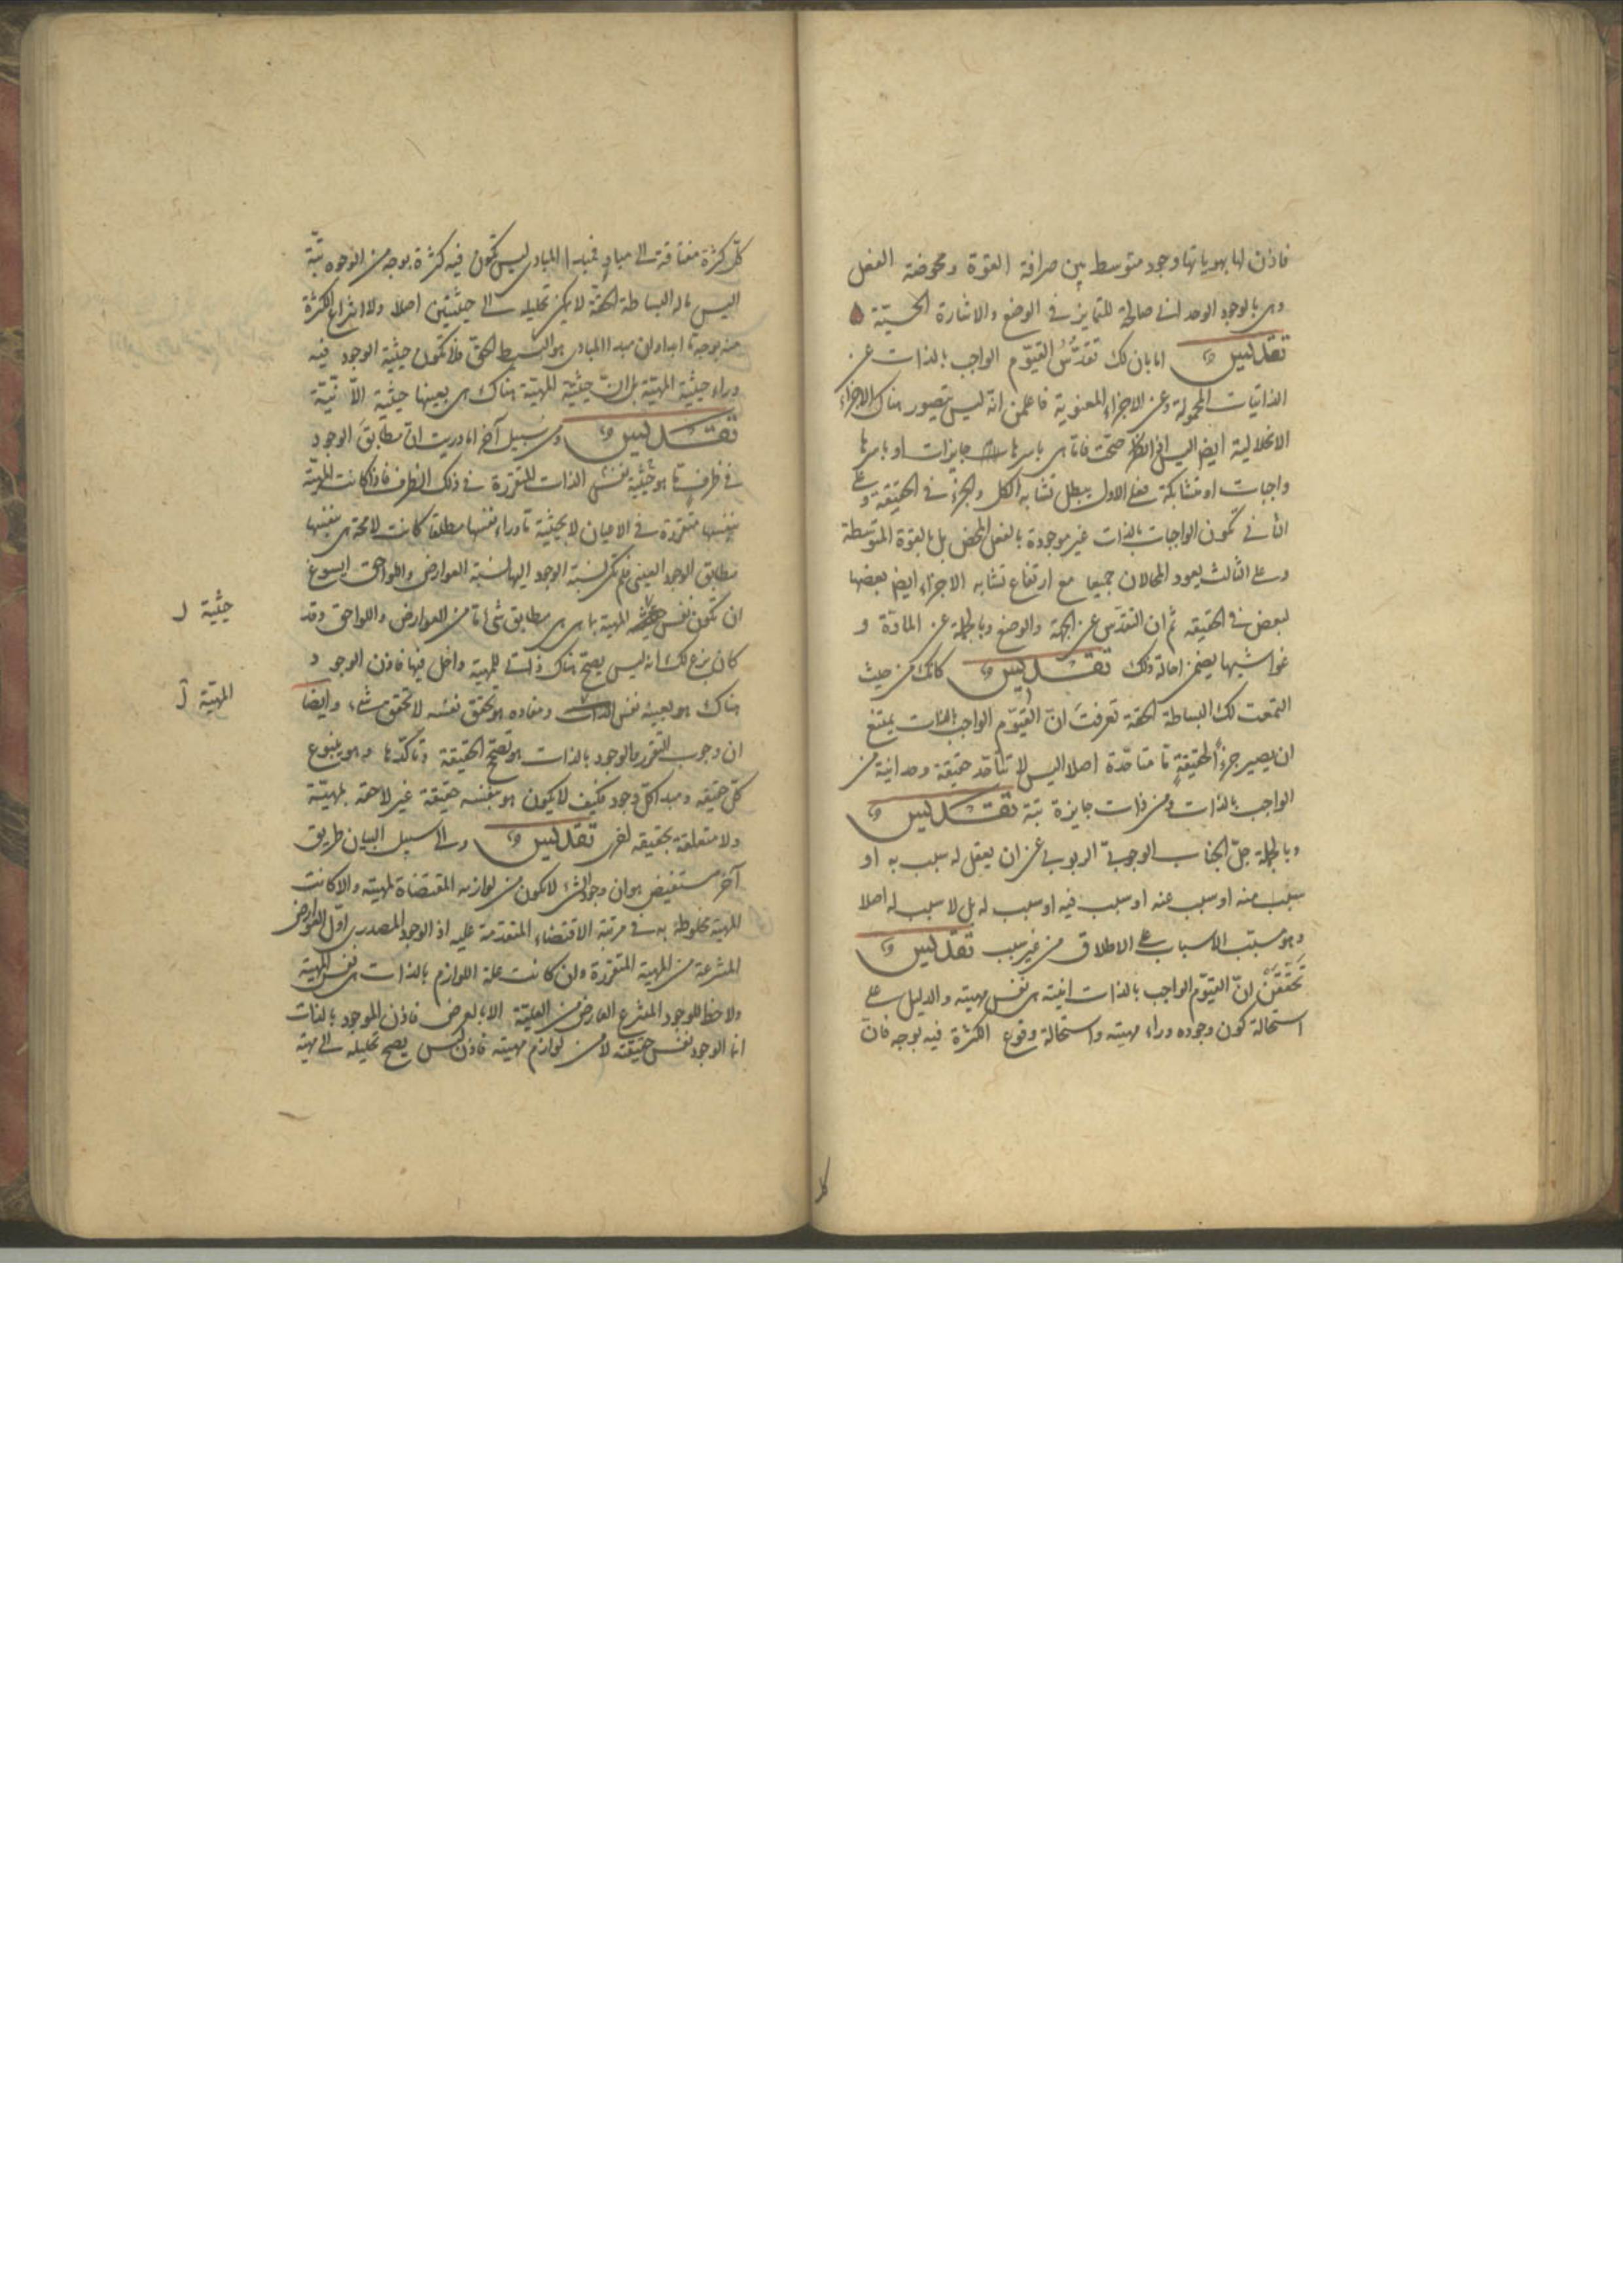 فاذن لها بهوياتها وجود متوسط بين صرافة القوة ومحوضة الفعل
وهى بالوجود الوحدانى صالحة للتمايز فى الوضع والاشارة الحسيّة ه
تقديس اما بان لك تقدّس القيّوم الواجب بالذات عن
الذاتيات المحمولة وعن الاجزاء المعنوية فاعلمن انه ليس يتصور هناك الاجزاء
الانحلالية ايضا اليس ان صحّت فاما هى باسرها جايزات او باسرها
واجبات او متشابكة فعلى الاول يبطل تشابه الكل والجزء فى الحقيقة وعلى
الثانى تكون الواجبات بالذات غير موجودة بالفعل المحض بل بالقوة المتوسطة
وعلى الثالث يعود المحالان جميعا مع ارتفاع تشابه الاجزاء ايضا بعضها
لبعض فى الحقيقه ثم ان التقدّس عن الجهة والوضع وبالجملة عن المادّة و
غواشيها يضمن احالة ذلك تقديس كانك من حيث
استمعت لك البساطة الحقة تعرفت انّ القيّوم الواجب بالذات يمتنع
ان يصير جزءا لحقيقةٍ ما متاحّدة اصلا اليس لا يتأحّد حقيقة وحدانية من
الواجب بالذات ومن ذات جايزة بتة تقديس
وبالجملة جلّ الجناب الوجوبىّ الربوبى عن ان يعقل له سبب به او
سبب منه او سبب عنه او سبب فيه او سبب له بل لا سبب له اصلا
وهو مسبّب الاسباب على الاطلاق من غير سبب تقديس
تحَقّقَنْ انّ القيّوم الواجب بالذات انيته هى نفس مهيته والدليل على
استحالة كون وجوده وراء مهيته واستحالة وقوع الكثرة فيه بوجه فان
كل
كلّ كثرة مفتاقة الى مبادٍ فمبدا المبادى ليس تكون فيه كثرة بوجه من الوجوه بتّة
اليس ما له البساطة الحقة لا يمكن تحليله الى حيثيتين اصلا ولا انتزاع الكثرة
منه بوجه ما ابدا وان مبدا المبادى هو البسيط الحقّ فلا تكون حيثية الوجود فيه
وراء حيثية المهيّة بل انّ حيثيّة المهيّة هناك هى بعينها حيثية الانّيّة
تقديس ومن سبيل آخر اما دريت ان مطابَق الوجود
فى ظرفٍ ما هو حيثية نفس الذات المتقررة فى ذلك الظرف فاذا كانت المهيّة
بنفسها متقررة فى الاعيان لا بحيثية ما وراء نفسها مطلقا كانت لا محة هى بنفسها
مطابق الوجود العينى فلم تكن نسبة الوجود اليها نسبة العوارض واللواحق ايسوغ
ان تكون نفس المهية بما هى هى مطابق شئ ما من العوارض واللواحق وقد
حيثية ل
كان بزع لك انه ليس يصح هناك ذاتى للمهية داخل فيها فاذن الوجود
هناك هو بعينه نفس ومفاده هو تحقق نفسه لا تحقق شئ، وايضا
المهيّة ل
ان وجوب التقرر والوجود بالذات هو تصحّح الحقيقة وتأكّدها وهو ينبوع
كلّ حقيقه ومبدا كلّ وجود فكيف لا يكون هو بنفسه حقيقة غير لاحقة لمهيّة
ولا متعلقة بحقيقه اخرى تقديس والى سبيل البيان طريق
آخر مستفيض هو ان وجود الشئ لا يكون من لوازمه المقتضاة لمهيته والا كانت
المهية مخلوطة به فى مرتبة الاقتضاء المتقدمة عليه اذ الوجود المصدرى اوّل العوارض
المنتزعة من المهية المتقررة وان كانت علة اللوازم بالذات هى نفس المهية
ولا حظ للوجود المنتزع العارض من العلّيّة الا بالعرض فاذن الموجود بالذات
انما الوجود نفس حقيقته لا من لوازم مهيته فاذن ليس يصح تحليله الى مهية